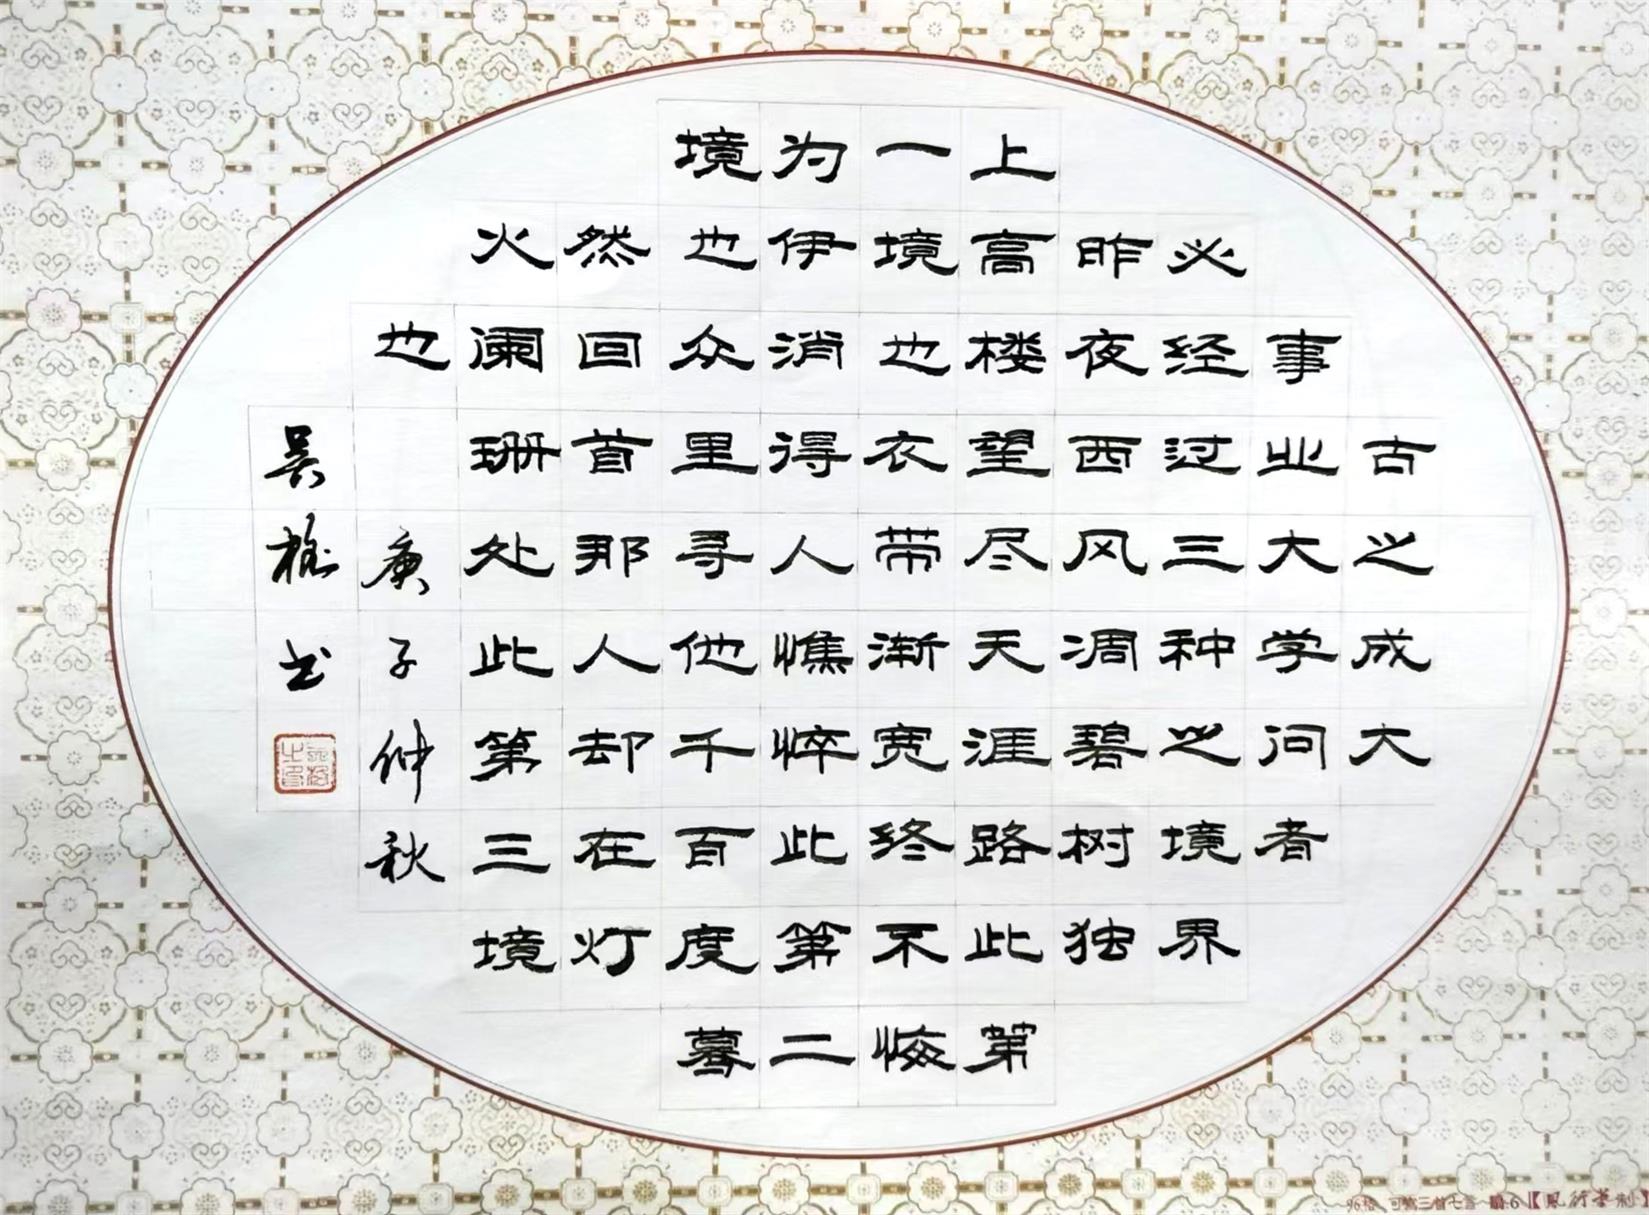 古之成大
事业大学问者
必经过三种之境界
昨夜西风凋碧树独
上高楼望尽天涯路此第
一境也衣带渐宽终不悔
为伊消得人憔悴此第二
境也众里寻他千百度蓦
然回首那人却在灯
火阑珊处此第三境
也
庚子仲秋
吴书
96格 可写三首七言